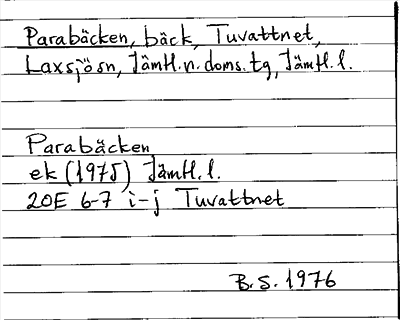 Parabäcken, bäck, Tuvattnet,
Laxsjö sn, Jämtl.n.doms.tg, Jämtl.l.
Parabäcken
ek (1975) Jämtl.l.
20E 6-7 i-j Tuvattnet
B.S. 1976